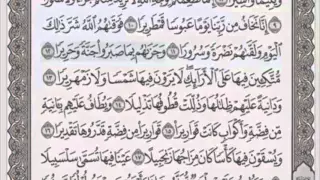 إِنَّا نَخَافُ مِن رَّبِّنَا يَوْمًا عَبُوسًا قَمْطَرِيرًا ١٠ فَوَقَىٰهُمُ ٱللَّهُ شَرَّ ذَٰلِكَ
ٱلْيَوْمِ وَلَقَّىٰهُمْ نَضْرَةً وَسُرُورًا ١١ وَجَزَىٰهُم بِمَا صَبَرُوا۟ جَنَّةً وَحَرِيرًا ١٢
مُّتَّكِـِٔينَ فِيهَا عَلَى ٱلْأَرَآئِكِ لَا يَرَوْنَ فِيهَا شَمْسًا وَلَا زَمْهَرِيرًا ١٣
وَدَانِيَةً عَلَيْهِمْ ظِلَٰلُهَا وَذُلِّلَتْ قُطُوفُهَا تَذْلِيلًا ١٤ وَيُطَافُ عَلَيْهِم بِـَٔانِيَةٍ
مِّن فِضَّةٍ وَأَكْوَابٍ كَانَتْ قَوَارِيرَا۠ ١٥ قَوَارِيرَا۟ مِن فِضَّةٍ قَدَّرُوهَا تَقْدِيرًا ١٦
وَيُسْقَوْنَ فِيهَا كَأْسًا كَانَ مِزَاجُهَا زَنجَبِيلًا ١٧ عَيْنًا فِيهَا تُسَمَّىٰ سَلْسَبِيلًا